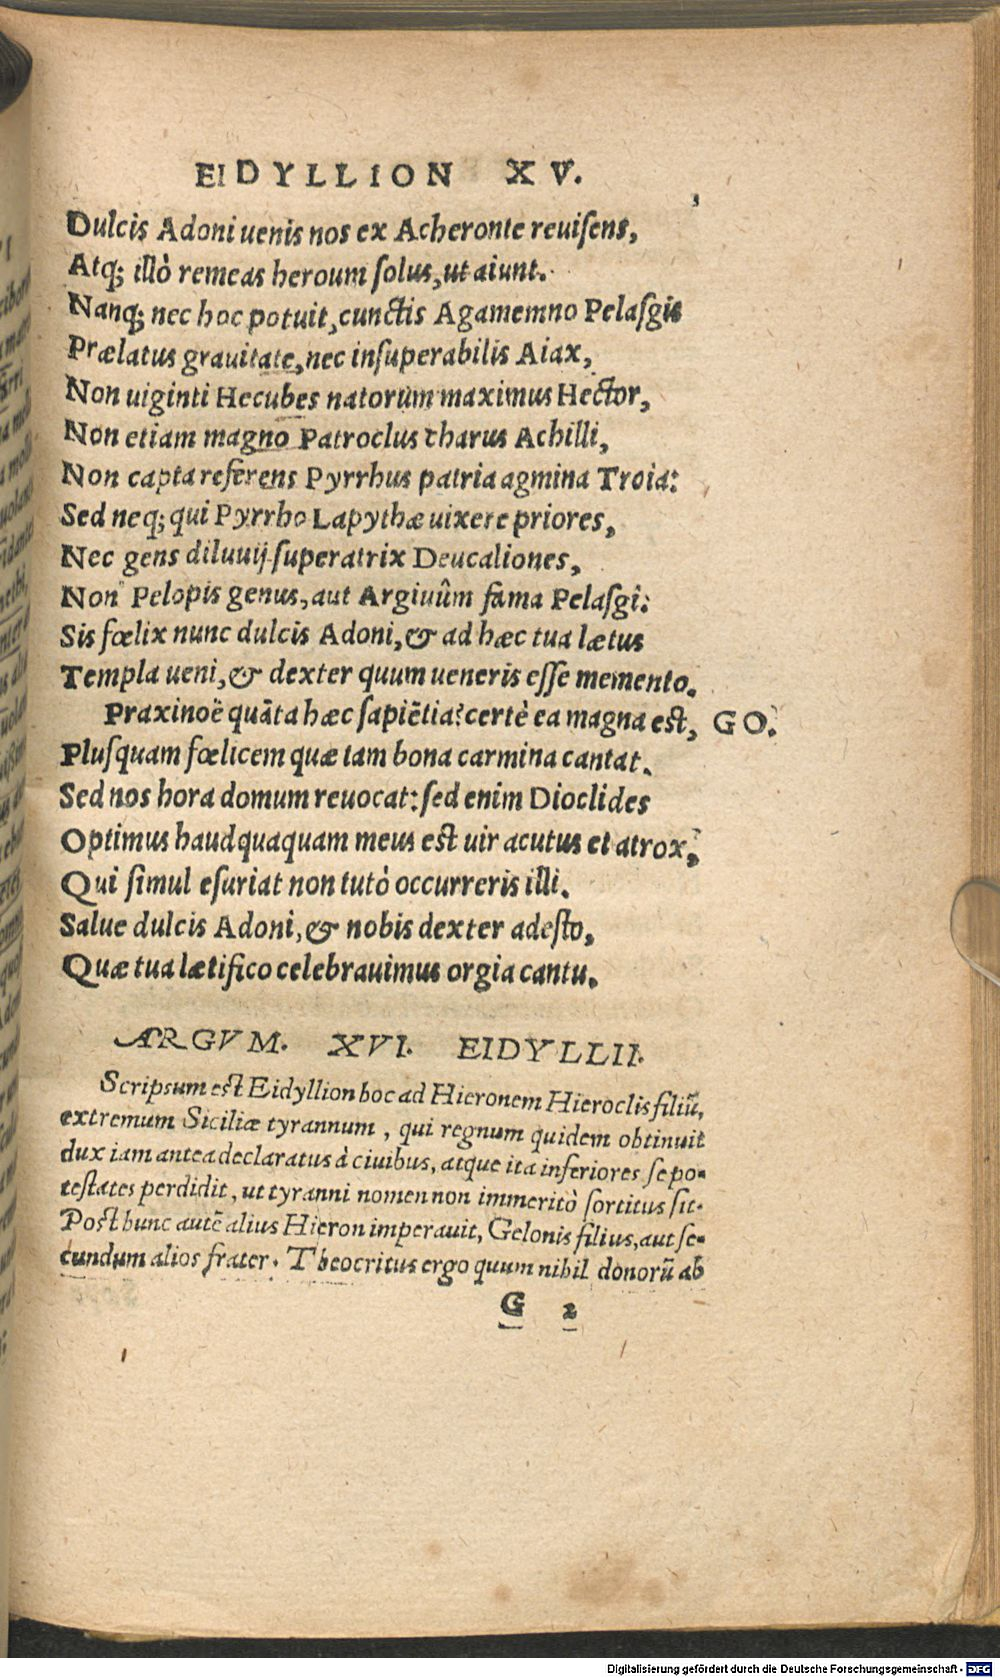 EIDYLLION XV.
Dulcis Adoni uenis nos ex Acheronte reuiſens,
Atq; illò remeas heroum ſolus, ut aiunt.
Nanq; nec hoc potuit, cunctis Agamemno Pelaſgis
Prælatus grauitate, nec inſuperabilis Aiax,
Non uiginti Hecubes natorum maximus Hector,
Non etiam magno Patroclus charus Achilli,
Non capta referens Pyrrhus patria agmina Troia:
Sed neq; qui Pyrrho Lapythæ uixere priores,
Nec gens diluuij ſuperatrix Deucaliones,
Non Pelopis genus, aut Argiuûm fama Pelaſgi:
Sis fœlix nunc dulcis Adoni, & ad hæc tua lætus
Templa ueni, & dexter quum ueneris eſſe memento.
Praxinoë quāta hæc ſapiētia? certè ea magna est, GO.
Pluſquam fœlicem quæ tam bona carmina cantat.
Sed nos hora domum reuocat: ſed enim Dioclides
Optimus haudquaquam meus est uir acutus et atrox,
Qui ſimul eſuriat non tutò occurreris illi.
Salue dulcis Adoni, & nobis dexter adeſto,
Quæ tua lætifico celebrauimus orgia cantu.
ARGVM. XVI. EIDYLLII.
Scripsum est Eidyllion hoc ad Hieronem Hieroclis filiū,
extremum Siciliæ tyrannum, qui regnum quidem obtinuit
dux iam antea declaratus à ciuibus, atque ita inferiores ſe po-
teſtates perdidit, ut tyranni nomen non immeritò ſortitus ſit.
Post hunc autē alius Hieron imperauit, Gelonis filius, aut ſe-
cundum alios frater. Theocritus ergo quum nihil donorū ab
G 2
Digitalisierung gefördert durch die Deutsche Forschungsgemeinschaft - DFG